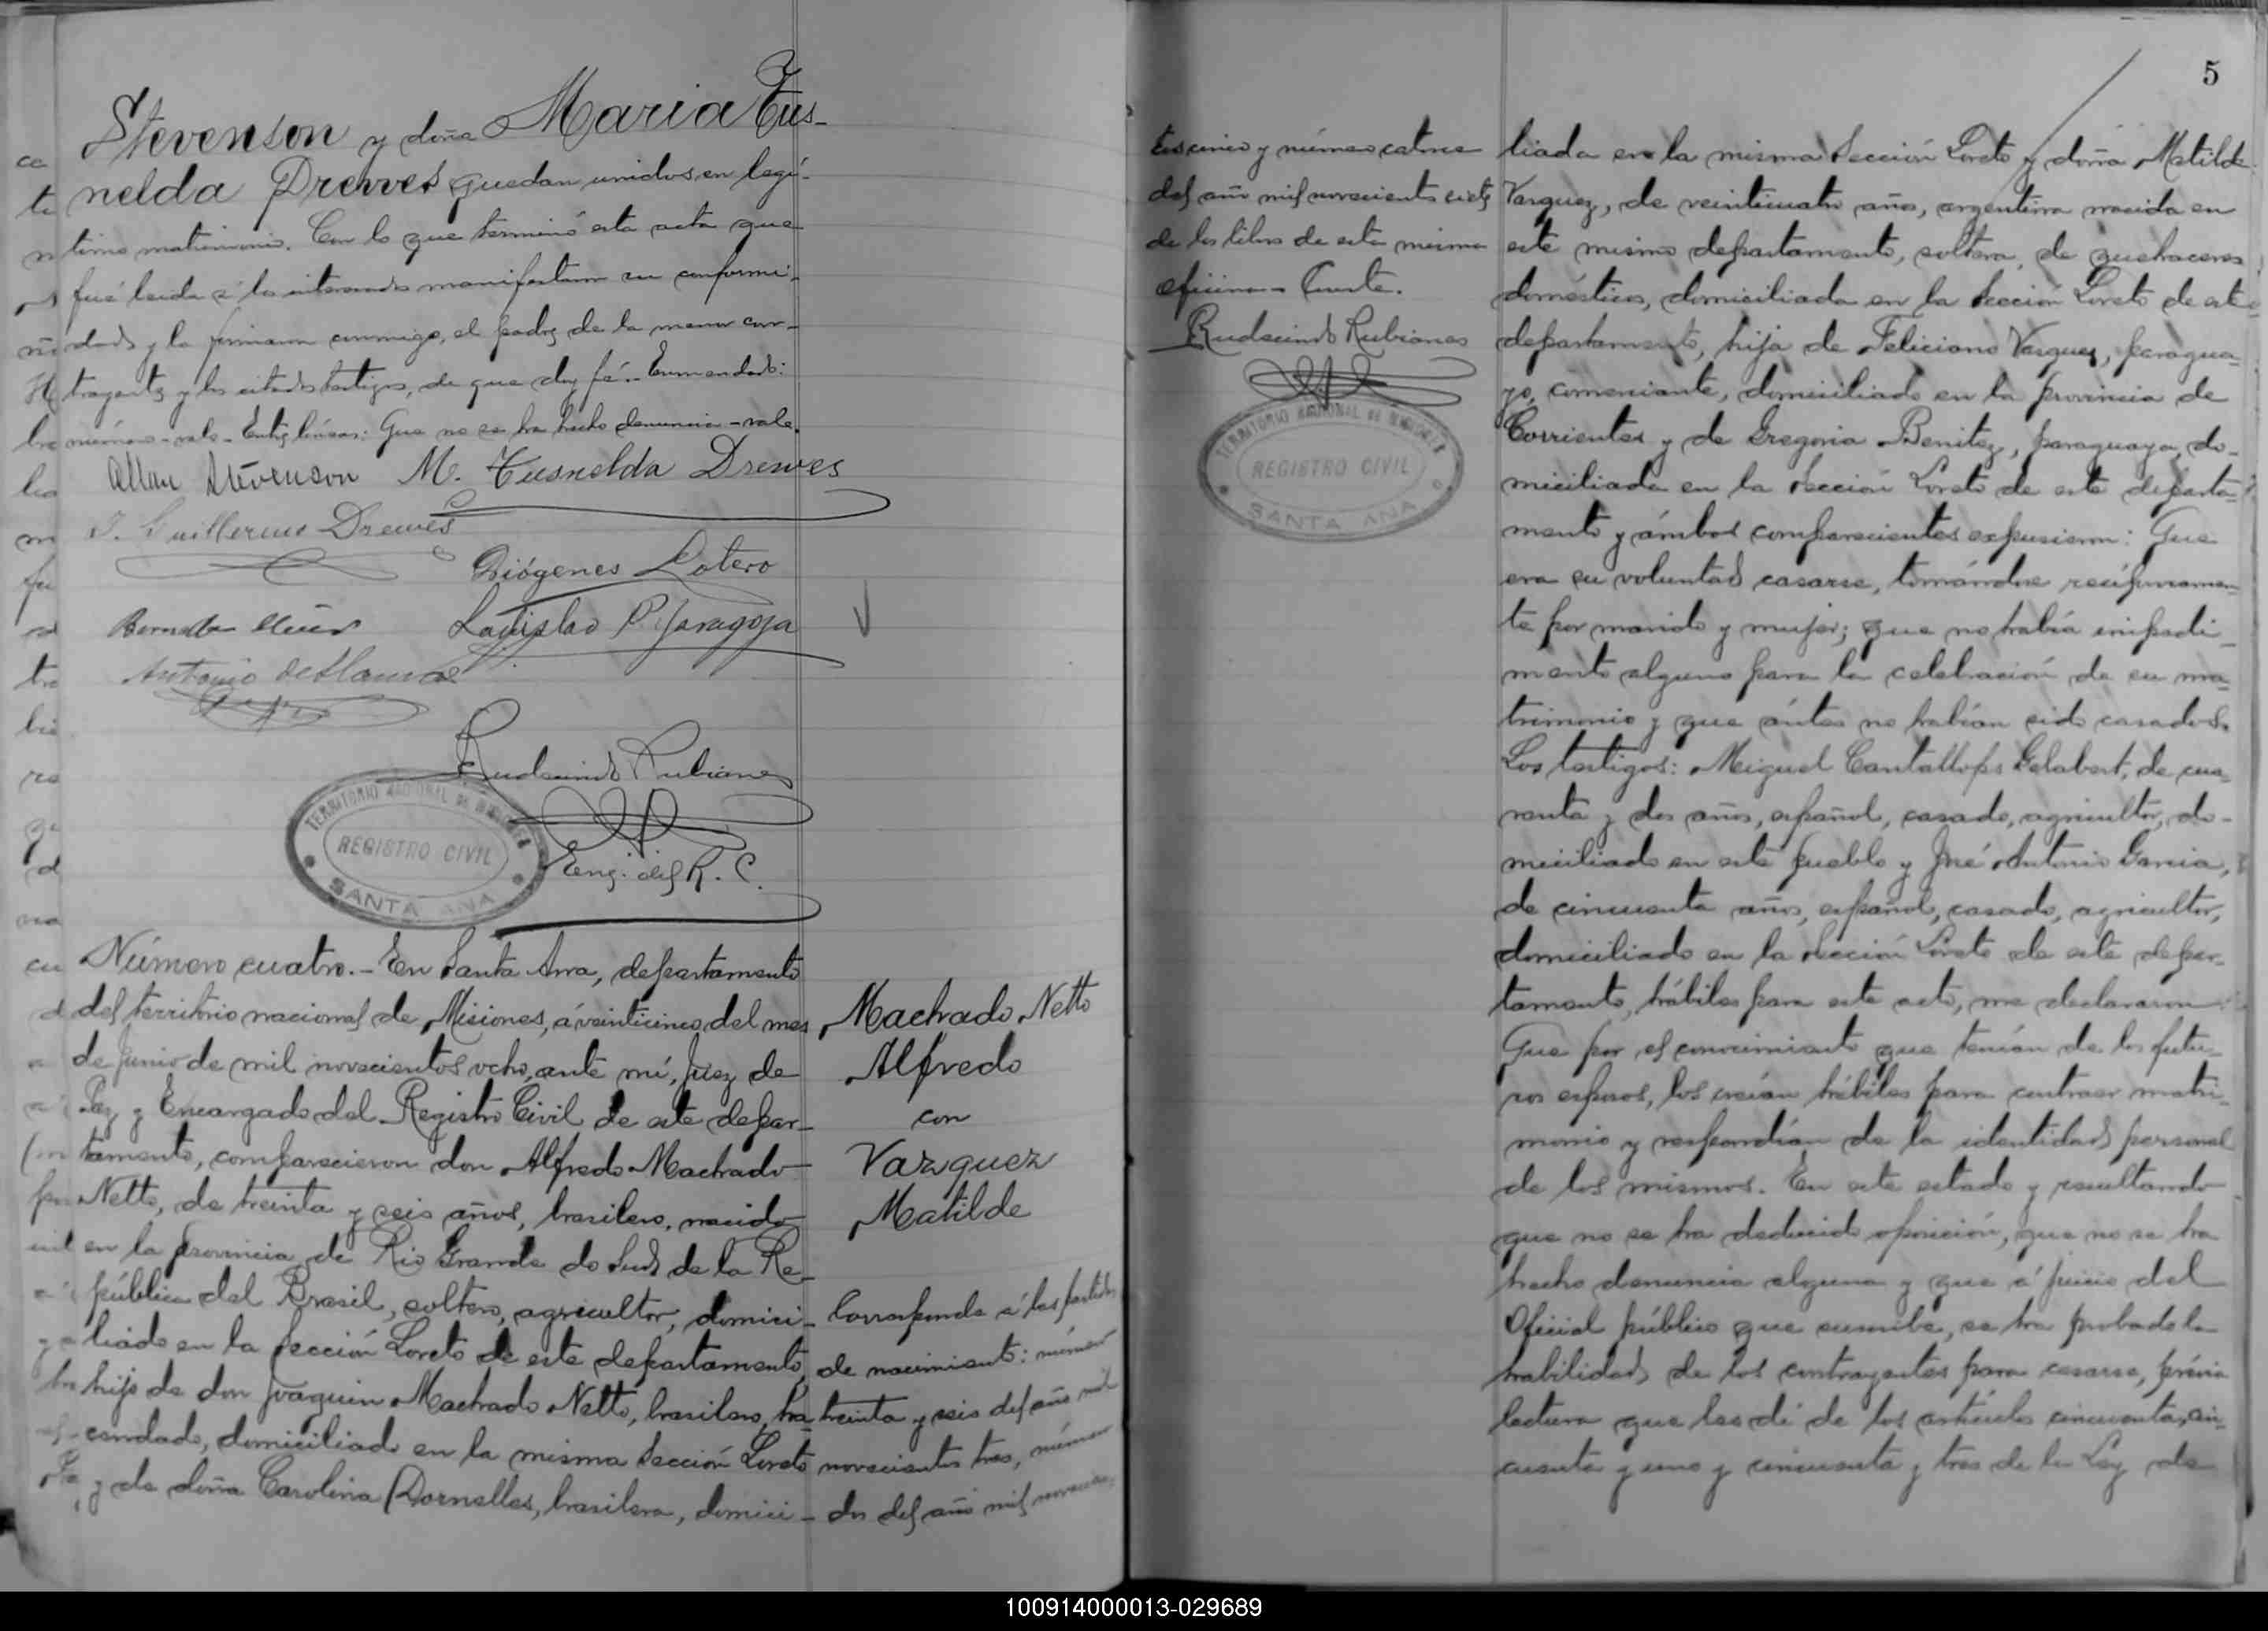 Stevenson y doña Maria Tus-
nelda Drewes quedan unidos en legí-
timo matrimonio. Con lo que terminó esta acta que
fué leida á los interesados manifestaron su conformi-
dad y la firmaron conmigo, el padre de la menor con-
trayente y los citados testigos, de que doy fé.- Enmendado:
número - vale - Entre líneas: Que no se ha hecho denuncia - vale.
Allan Stevenson M. Tusnelda Drewes
J. Guillermo Drewes
Diógenes Lotero
Ladislao P. Yaragoza
Antonio de
Rudecindo Rubianes
TERRITORIO NACIONAL DE MISIONES
REGISTRO CIVIL
SANTA ANA
Enc. del R. C.
Número cuatro.- En Santa Ana, departamento
del territorio nacional de Misiones, á veinticinco del mes
de Junio de mil novecientos ocho, ante mí, Juez de
Paz y Encargado del Registro Civil de este depar-
tamento, comparecieron don Alfredo Machado
Netto, de treinta y seis años, brasilero, nacido
en la provincia de Rio Grande do Sud de la Re-
pública del Brasil, soltero, agricultor, domici-
liado en la Sección Loreto de este departamento,
hijo de don Joaquin Machado Netto, brasilero, ha-
cendado, domiciliado en la misma Sección Loreto
y de doña Carolina Dornelles, brasilera, domici-
Machado Netto
Alfredo
con
Vazquez
Matilde
Corresponde á las partidas
de nacimiento: número
treinta y seis del año mil
novecientos tres, número
dos del año mil novecien-
tos cinco y número catorce
del año mil novecientos siete
de los libros de esta misma
oficina - Conste.
Rudecindo Rubianes
TERRITORIO NACIONAL DE MISIONES
REGISTRO CIVIL
SANTA ANA
5
liada en la misma Sección Loreto y doña Matilde
Vazquez, de veinticuatro años, argentina nacida en
este mismo departamento, soltera, de quehaceres
domésticos, domiciliada en la Sección Loreto de este
departamento, hija de Feliciano Vazquez, paragua-
yo, comerciante, domiciliado en la provincia de
Corrientes y de Gregoria Benitez, paraguaya, do-
miciliada en la Sección Loreto de este departa-
mento y ámbos comparecientes expusieron: Que
era su voluntad casarse, tomándose recíprocamen-
te por marido y mujer; que no había impedi-
mento alguno para la celebración de su ma-
trimonio y que ántes no habían sido casados.
Los testigos: Miguel Cantallops Gelabert, de cua-
renta y dos años, español, casado, agricultor, do-
miciliado en este pueblo y José Antonio Garcia,
de cincuenta años, español, casado, agricultor,
domiciliado en la Sección Loreto de este depar-
tamento, hábiles para este acto, me declararon:
Que por el conocimiento que tenían de los futu-
ros esposos, los creían hábiles para contraer matri-
monio y respondían de la identidad personal
de los mismos. En este estado y resultando
que no se ha deducido oposición, que no se ha
hecho denuncia alguna y que á juicio del
Oficial público que suscribe, se ha probado la
habilidad de los contrayentes para casarse, prévia
lectura que les dí de los artículos cincuenta, cin-
cuenta y uno y cincuenta y tres de la Ley de
100914000013-029689